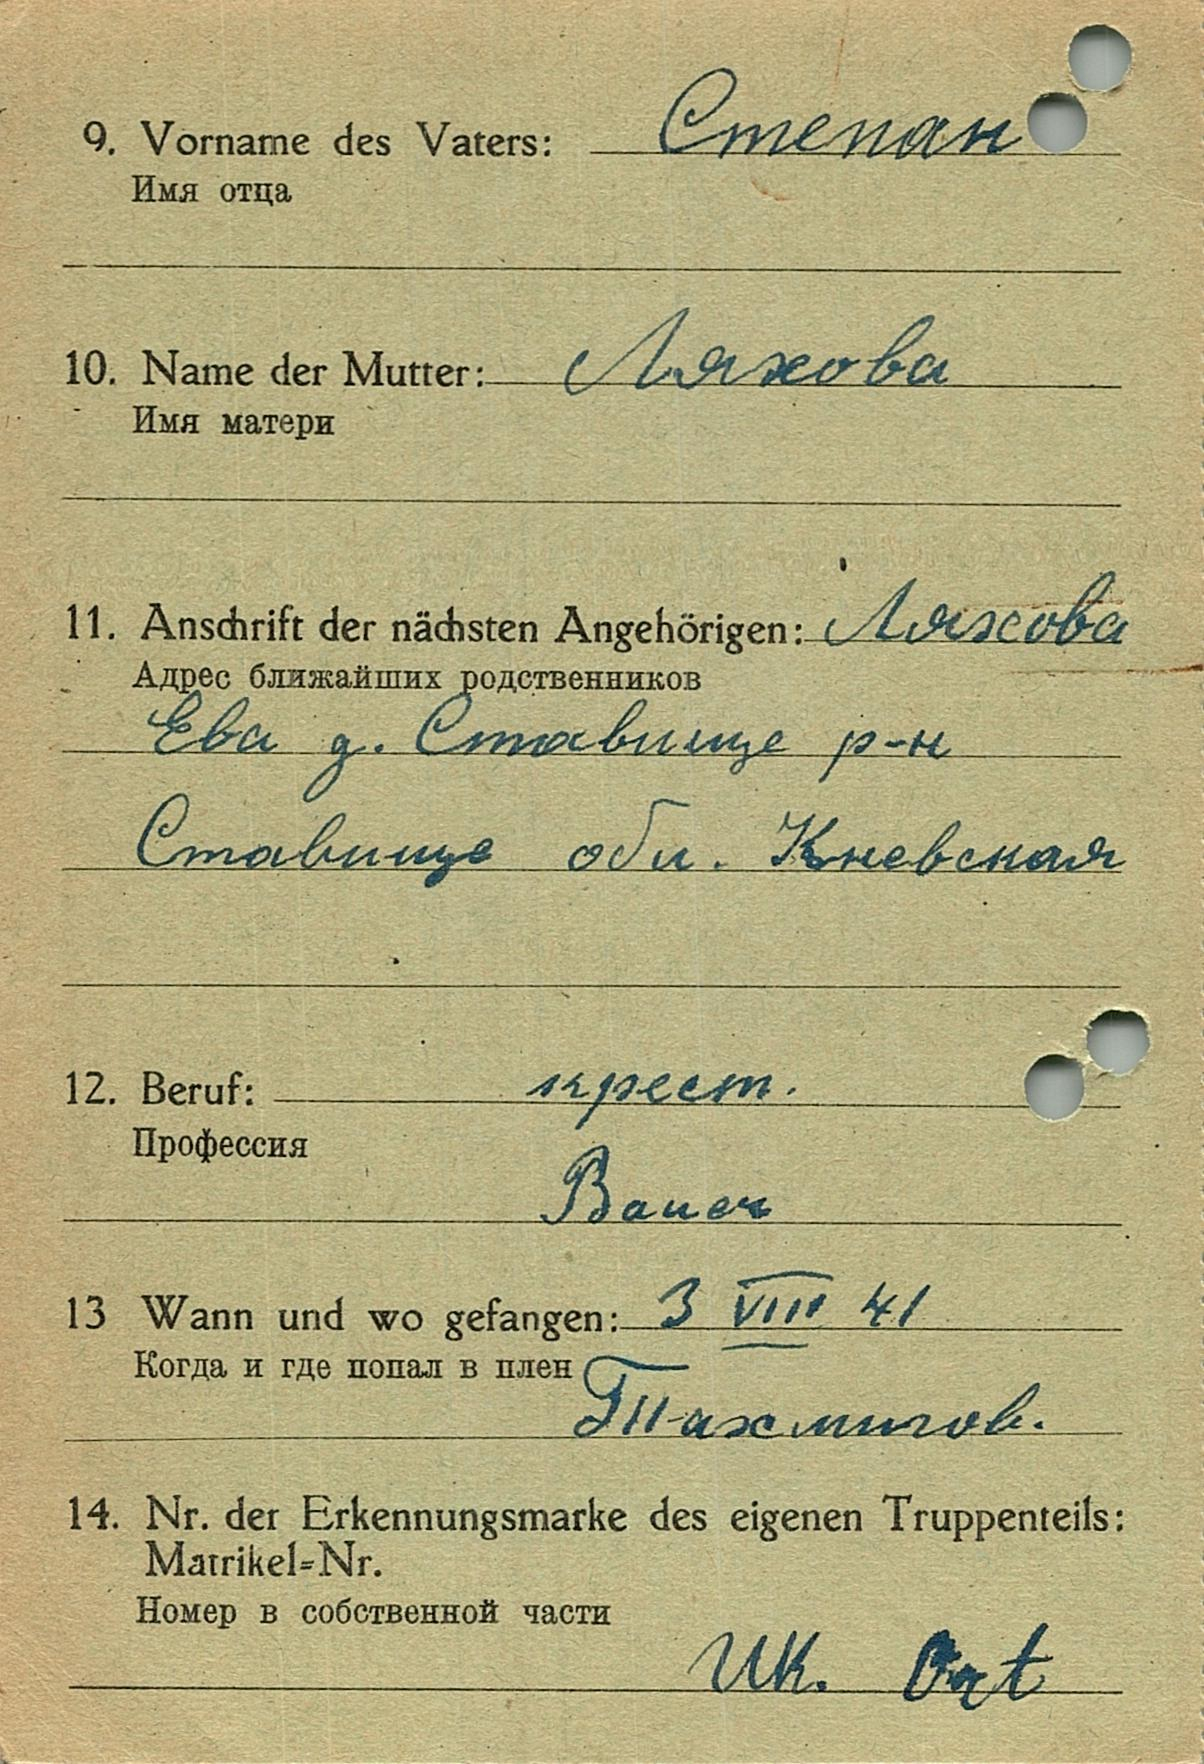 9. Vorname des Vaters: Степан
Имя отца
10. Name der Mutter: Ляхова
Имя матери
11. Anschrift der nächsten Angehörigen: Ляхова
Адрес ближайших родственников
Ева д. Ставище р-н
Ставище обл. Киевская
12. Beruf: крест.
Профессия
Bauer
13 Wann und wo gefangen: 3 VIII 41
Когда и где попал в плен
14. Nr. der Erkennungsmarke des eigenen Truppenteils:
Matrikel=Nr.
Номер в собственной части
Uk.